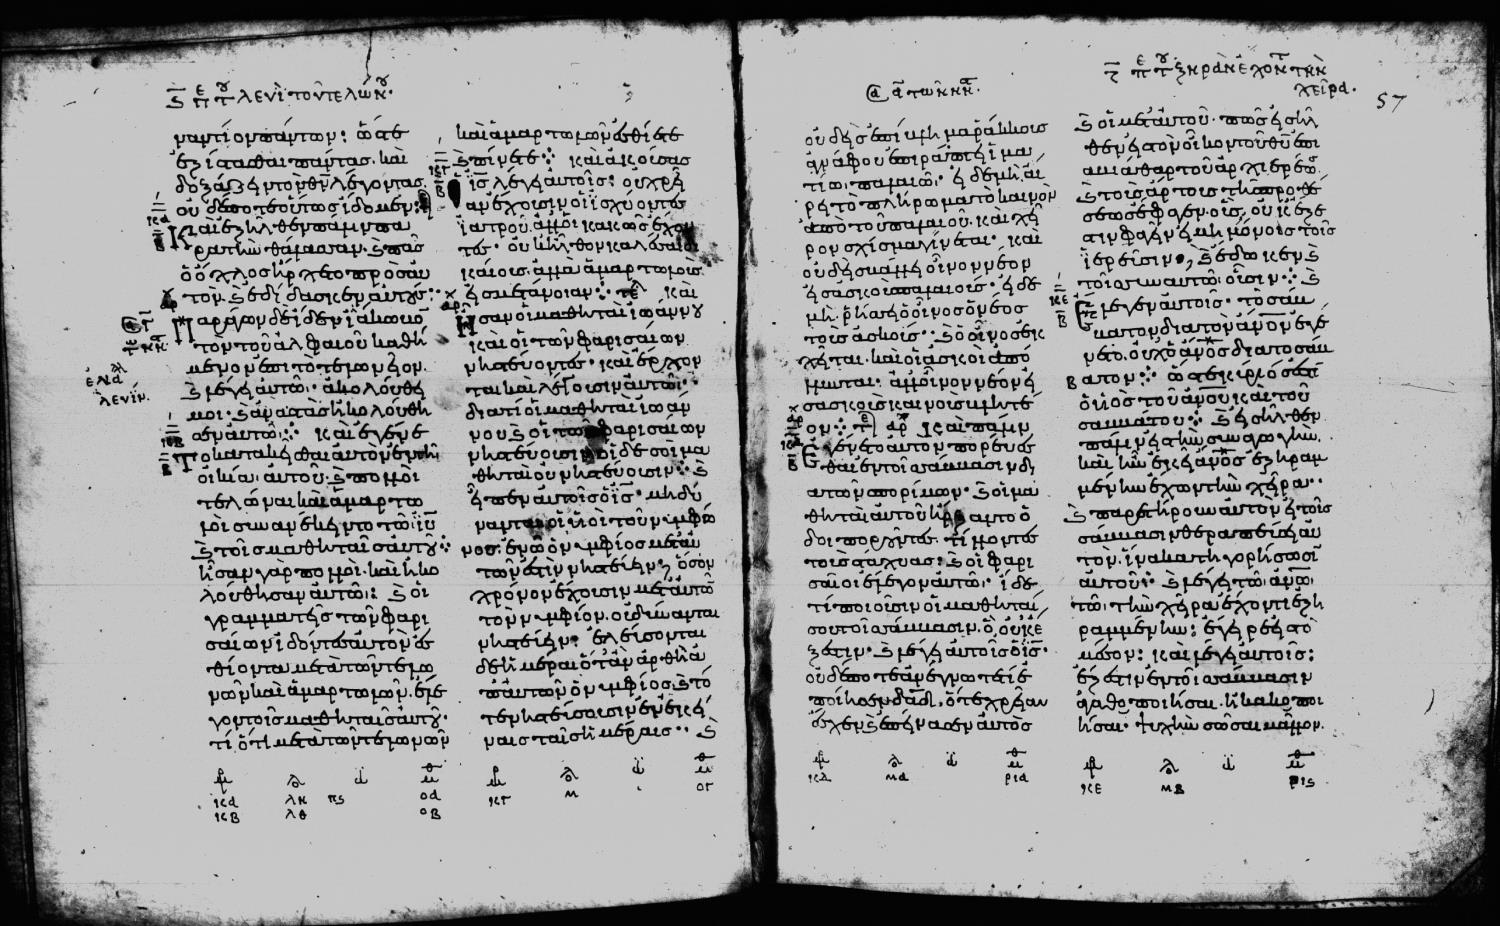 λευὶ τοῦ τελώνου.
ναντίον πάντων: ὥστε
ἐξίστασθαι πάντας. καὶ
δοξάζειν τὸν θν̄ λέγοντας
οὐδέποτε οὕτως ἴδομεν:
Καὶ ἐξῆλθεν πάλιν πα
ρὰ τὴν θάλασσαν. ϗ πᾶς
ὁ ὄχλος ἤρχετο πρὸς αὐ
τόν. ϗ ἐδίδασκεν αὐτούς:
Παράγων δὲ ἴδεν ἰάκωβο
τὸν τοῦ ἀλφαίου καθή
μενον ἐπὶ τὸ τελώνιον.
ϗ λέγει αὐτῶ. ἀκολούθει
μοι. ϗ ἀναστὰς ἠκολούθη
σεν αὐτῶ: καὶ ἐγένε
Το κατακεῖσθαι αὐτὸν ἐν τῆ
οἰκία αὐτοῦ. ϗ πολλοὶ
τελῶναι καὶ ἁμαρτω
λοὶ συνανέκειντο τῶ ιῡ
ϗ τοῖς μαθηταῖς αὐτοῦ:
ἦσαν γὰρ πολλοί. καὶ ἠκο
λούθησαν αὐτῶ: ϗ οἱ
γραμματεῖς τῶν φαρι
σαίων ἰδόντες αὐτὸν ἐσ
θίοντα μετὰ τῶν τελω
νῶν καὶ ἁμαρτωλῶν. ἔλε
γον τοῖς μαθηταῖς αὐτοῦ.
τί ὅτι μετὰ τῶν τελωνῶν
καὶ ἁμαρτωλῶν ἐσθίετε
ϗ πίνετε: καὶ ἀκούσας
ὁ ις̄ λέγει αὐτοῖς: οὐ χρεί
αν ἔχουσιν οἱ ἰσχύοντες
ἰατροῦ. ἀλλ' οἱ κακῶς ἔχον
τες. οὐκ ἦλθον καλέσαι δι
καίους. ἀλλὰ ἁμαρτωλοὺς
εἰς μετάνοιαν: καὶ
Ἦσαν οἱ μαθηταὶ ἰωάννου
καὶ οἱ τῶν φαρισαίων
νηστεύοντες. καὶ ἔρχον
ται καὶ λέγουσιν αὐτῶ.
διατί οἱ μαθηταὶ ἰωάν
νου ϗ οἱ τῶν φαρισαίων
νηστεύουσιν. οἱ δὲ σοὶ μα
θηταὶ οὐ νηστεύουσιν: ϗ
εἶπεν αὐτοῖς ὁ ις̄. μὴ δύ
νανται οἱ υἱοὶ τοῦ νυμφῶ
νος. ἐν ὧ ὁ νυμφίος μετ' αὐ
τῶν ἐστὶν νηστεύειν; ὅσον
χρόνον ἔχουσιν μεθ' ἑαυτῶ
τὸν νυμφίον. οὐ δύνανται
νηστεύειν. ἐλεύσονται
δὲ ἡμέραι ὅταν ἀρθῆ ἀ
π' αὐτῶν ὁ νυμφίος. ϗ τό
τε νηστεύσουσιν ἐν ἐκεί
ναις ταῖς ἡμέραις: ϗ
ξηρὰν ἔχοντ τὴν
χεῖρα.
57
οὐδεὶς ἐπίβλημα ῥάκκους
ἀγνάφου ἐπιράπτει ἱμα
τίω παλαιῶ. εἰ δὲ μὴ αἴ
ρει τὸ πλήρωμα τὸ καινὸν
ἀπὸ τοῦ παλαιοῦ. καὶ χεῖ
ρον σχίσμα γίνεται. καὶ
οὐδεὶς βάλλει οἶνον νέον
εἰς ἀσκοὺς παλαιούς. εἰ δὲ
μὴ ῥήσσει ὁ οἶνος ὁ νέος
τοὺς ἀσκούς. ϗ ὁ οἶνος ἐκ
χεῖται. καὶ οἱ ἀσκοὶ ἀπό
λλυνται. ἀλλ' οἶνον νέον εἰ
σ ἀσκοὺς καινοὺς βλητέ
ον: καὶ πάλιν
Ἐγένετο αὐτὸν πορεύεσ
θαι ἐν τοῖς σάββασιν δι
ὰ τῶν σπορίμων. ϗ οἱ μα
θηταὶ αὐτοῦ ἤρξαντο ὁ
δοιποροῦντες τίλλοντες
τοὺς στάχυας: ϗ οἱ φαρι
σαῖοι ἔλεγον αὐτῶ. ἴδε
τί ποιοῦσιν οἱ μαθηταί
σου τοῖς σάββασιν. ὃ οὐκ ἔ
ξεστιν. ϗ λέγει αὐτοῖς ὁ ις̄.
οὐδέποτε ἀνέγνωτε τί ἐ
ποίησεν δᾱδ. ὅτε χρείαν
ἔσχεν ϗ ἐπείνασεν αὐτὸς
ϗ οἱ μετ' αὐτοῦ. πῶς εἰσῆλ
θεν εἰς τὸν οἶκον τοῦ θῡ ἐπὶ
ἀβιάθαρ τοῦ ἀρχιερέως
ϗ τοὺς ἄρτους τῆς προθέ
σεως ἔφαγεν. οὓς οὐκ ἔξε
στιν φαγεῖν εἰ μὴ μόνοις τοῖς
ἱερεῦσιν, ϗ ἔδωκεν ϗ
τοῖς σὺν αὐτῶ οὖσιν: ϗ
Ἔλεγεν αὐτοῖς. τὸ σάβ
βατον διὰ τὸν ἄνον ἐγέ
νετο. οὐχ ὁ ἄνος διὰ τὸ σάβ
βατον: ὥστε κύριός ἐστι
ὁ υἱὸς τοῦ ἀνοῦ καὶ τοῦ
σαββάτου: ϗ εἰσῆλθεν
πάλιν εἰς τὴν συναγωγήν.
καὶ ἦν ἐκεῖ ἄνος ἐξηραμ
μένην ἔχων τὴν χεῖρα.
ϗ παρετήρουν αὐτὸν εἰ τοῖς
σάββασιν θεραπεύσει αὐ
τόν. ἵνα κατηγορήσωσι
αὐτοῦ: ϗ λέγει τῶ ἀνῶ
τῶ τὴν χεῖρα ἔχοντι ἐξη
ραμμένην: ἔγειρε εἰς τὸ
μέσον: καὶ λέγει αὐτοῖς:
ἔξεστιν ἐν τοῖς σάββασιν
ἀγαθοποιῆσαι. ἢ κακοποι
ῆσαι. ψυχὴν σῶσαι μᾶλλον.